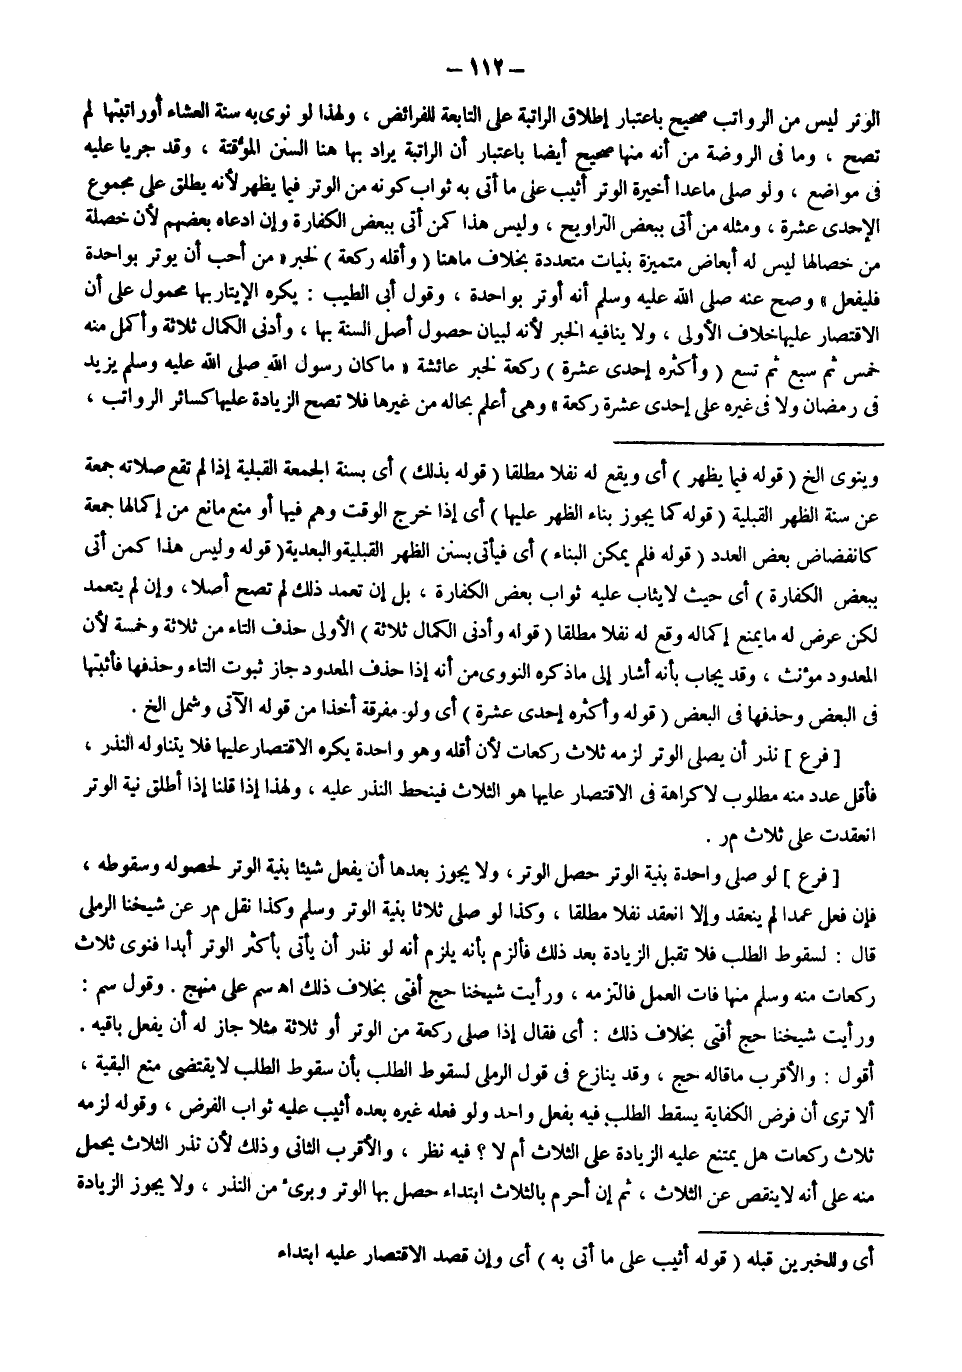 – ١١٢ –
الوتر ليس من الرواتب صحيح باعتبار إطلاق الراتبة على التابعة للفرائض ، ولهذا لو نوى به سنة العشاء أوراتبتها لم
تصح ، وما فى الروضة من أنه منها صحيح أيضا باعتبار أن الراتبة يراد بها هنا السنن المؤقتة ، وقد جريا عليه
فى مواضع ، ولو صلى ماعدا أخيرة الوتر أثيب على ما أتى به ثواب كونه من الوتر فيما يظهر لأنه يطلق على مجموع
الإحدى عشرة ، ومثله من أتى ببعض التراويح ، وليس هذا كمن أتى ببعض الكفارة وإن ادعاه بعضهم لأن خصلة
من خصالها ليس له أبعاض متميزة بنيات متعددة بخلاف ماهنا ( وأقله ركعة ) لخبر « من أحب أن يوتر بواحدة
فليفعل » وصح عنه صلى الله عليه وسلم أنه أوتر بواحدة ، وقول أبى الطيب : يكره الإيتار بها محمول على أن
الاقتصار عليها خلاف الأولى ، ولا ينافيه الخبر لأنه لبيان حصول أصل السنة بها ، وأدنى الكمال ثلاثة وأكمل منه
خمس ثم سبع ثم تسع ( وأكثره إحدى عشرة ) ركعة لخبر عائشة « ماكان رسول الله صلى الله عليه وسلم يزيد
فى رمضان ولا فى غيره على إحدى عشرة ركعة » وهى أعلم بحاله من غيرها فلا تصح الزيادة عليها كسائر الرواتب ،
وينوى الخ ( قوله فيما يظهر ) أى ويقع له نفلا مطلقا ( قوله بذلك ) أى بسنة الجمعة القبلية إذا لم تقع صلاته جمعة
عن سنة الظهر القبلية ( قوله كما يجوز بناء الظهر عليها ) أى إذا خرج الوقت وهم فيها أو منع مانع من إكمالها جمعة
كانفضاض بعض العدد ( قوله فلم يمكن البناء ) أى فيأتى بسنن الظهر القبلية والبعدية ( قوله وليس هذا كمن أتى
ببعض الكفارة ) أى حيث لايثاب عليه ثواب بعض الكفارة ، بل إن تعمد ذلك لم تصح أصلا ، وإن لم يتعمد
لكن عرض له ما يمنع إكماله وقع له نفلا مطلقا ( قوله وأدنى الكمال ثلاثة ) الأولى حذف التاء من ثلاثة وخمسة لأن
المعدود مؤنث ، وقد يجاب بأنه أشار إلى ماذكره النووى من أنه إذا حذف المعدود جاز ثبوت التاء وحذفها فأثبتها
فى البعض وحذفها فى البعض ( قوله وأكثره إحدى عشرة ) أى ولو مفرقة أخذا من قوله الآتى وشمل الخ .
[ فرع ] نذر أن يصلى الوتر لزمه ثلاث ركعات لأن أقله وهو واحدة يكره الاقتصار عليها فلا يتناوله النذر ،
فأقل عدد منه مطلوب لاكراهة فى الاقتصار عليها هو الثلاث فينحط النذر عليه ، ولهذا إذا قلنا إذا أطلق نية الوتر
انعقدت على ثلاث مر .
[ فرع ] لو صلى واحدة بنية الوتر حصل الوتر ، ولا يجوز بعدها أن يفعل شيئا بنية الوتر لحصوله وسقوطه ،
فإن فعل عمدا لم ينعقد وإلا انعقد نفلا مطلقا ، وكذا لو صلى ثلاثا بنية الوتر وسلم وكذا نقل مر عن شيخنا الرملى
قال : لسقوط الطلب فلا تقبل الزيادة بعد ذلك فألزم بأنه يلزم أنه لو نذر أن يأتى بأكثر الوتر أبدا فنوى ثلاث
ركعات منه وسلم منها فات العمل فالتزمه ، ورأيت شيخنا حج أفتى بخلاف ذلك اه سم على منهج . وقول سم :
ورأيت شيخنا حج أفتى بخلاف ذلك : أى فقال إذا صلى ركعة من الوتر أو ثلاثة مثلا جاز له أن يفعل باقيه .
أقول : والأقرب ماقاله حج ، وقد ينازع فى قول الرملى لسقوط الطلب بأن سقوط الطلب لايقتضى منع البقية ،
ألا ترى أن فرض الكفاية يسقط الطلب فيه بفعل واحد ولو فعله غيره بعده أثيب عليه ثواب الفرض ، وقوله لزمه
ثلاث ركعات هل يمتنع عليه الزيادة على الثلاث أم لا ؟ فيه نظر ، والأقرب الثانى وذلك لأن نذر الثلاث يحمل
منه على أنه لاينقص عن الثلاث ، ثم إن أحرم بالثلاث ابتداء حصل بها الوتر وبرىء من النذر ، ولا يجوز الزيادة
أى وللخبرين قبله ( قوله أثيب على ما أتى به ) أى وإن قصد الاقتصار عليه ابتداء